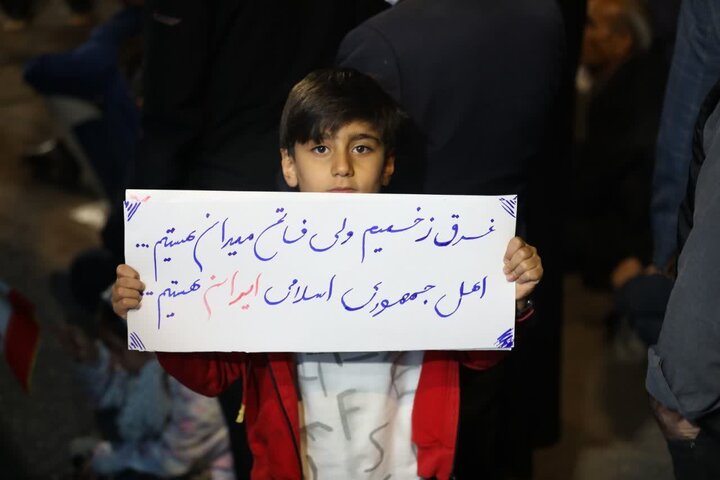 غرق زخمیم ولی فاتح میدان هستیم...
اهل جمهوری اسلامی ایران هستیم...